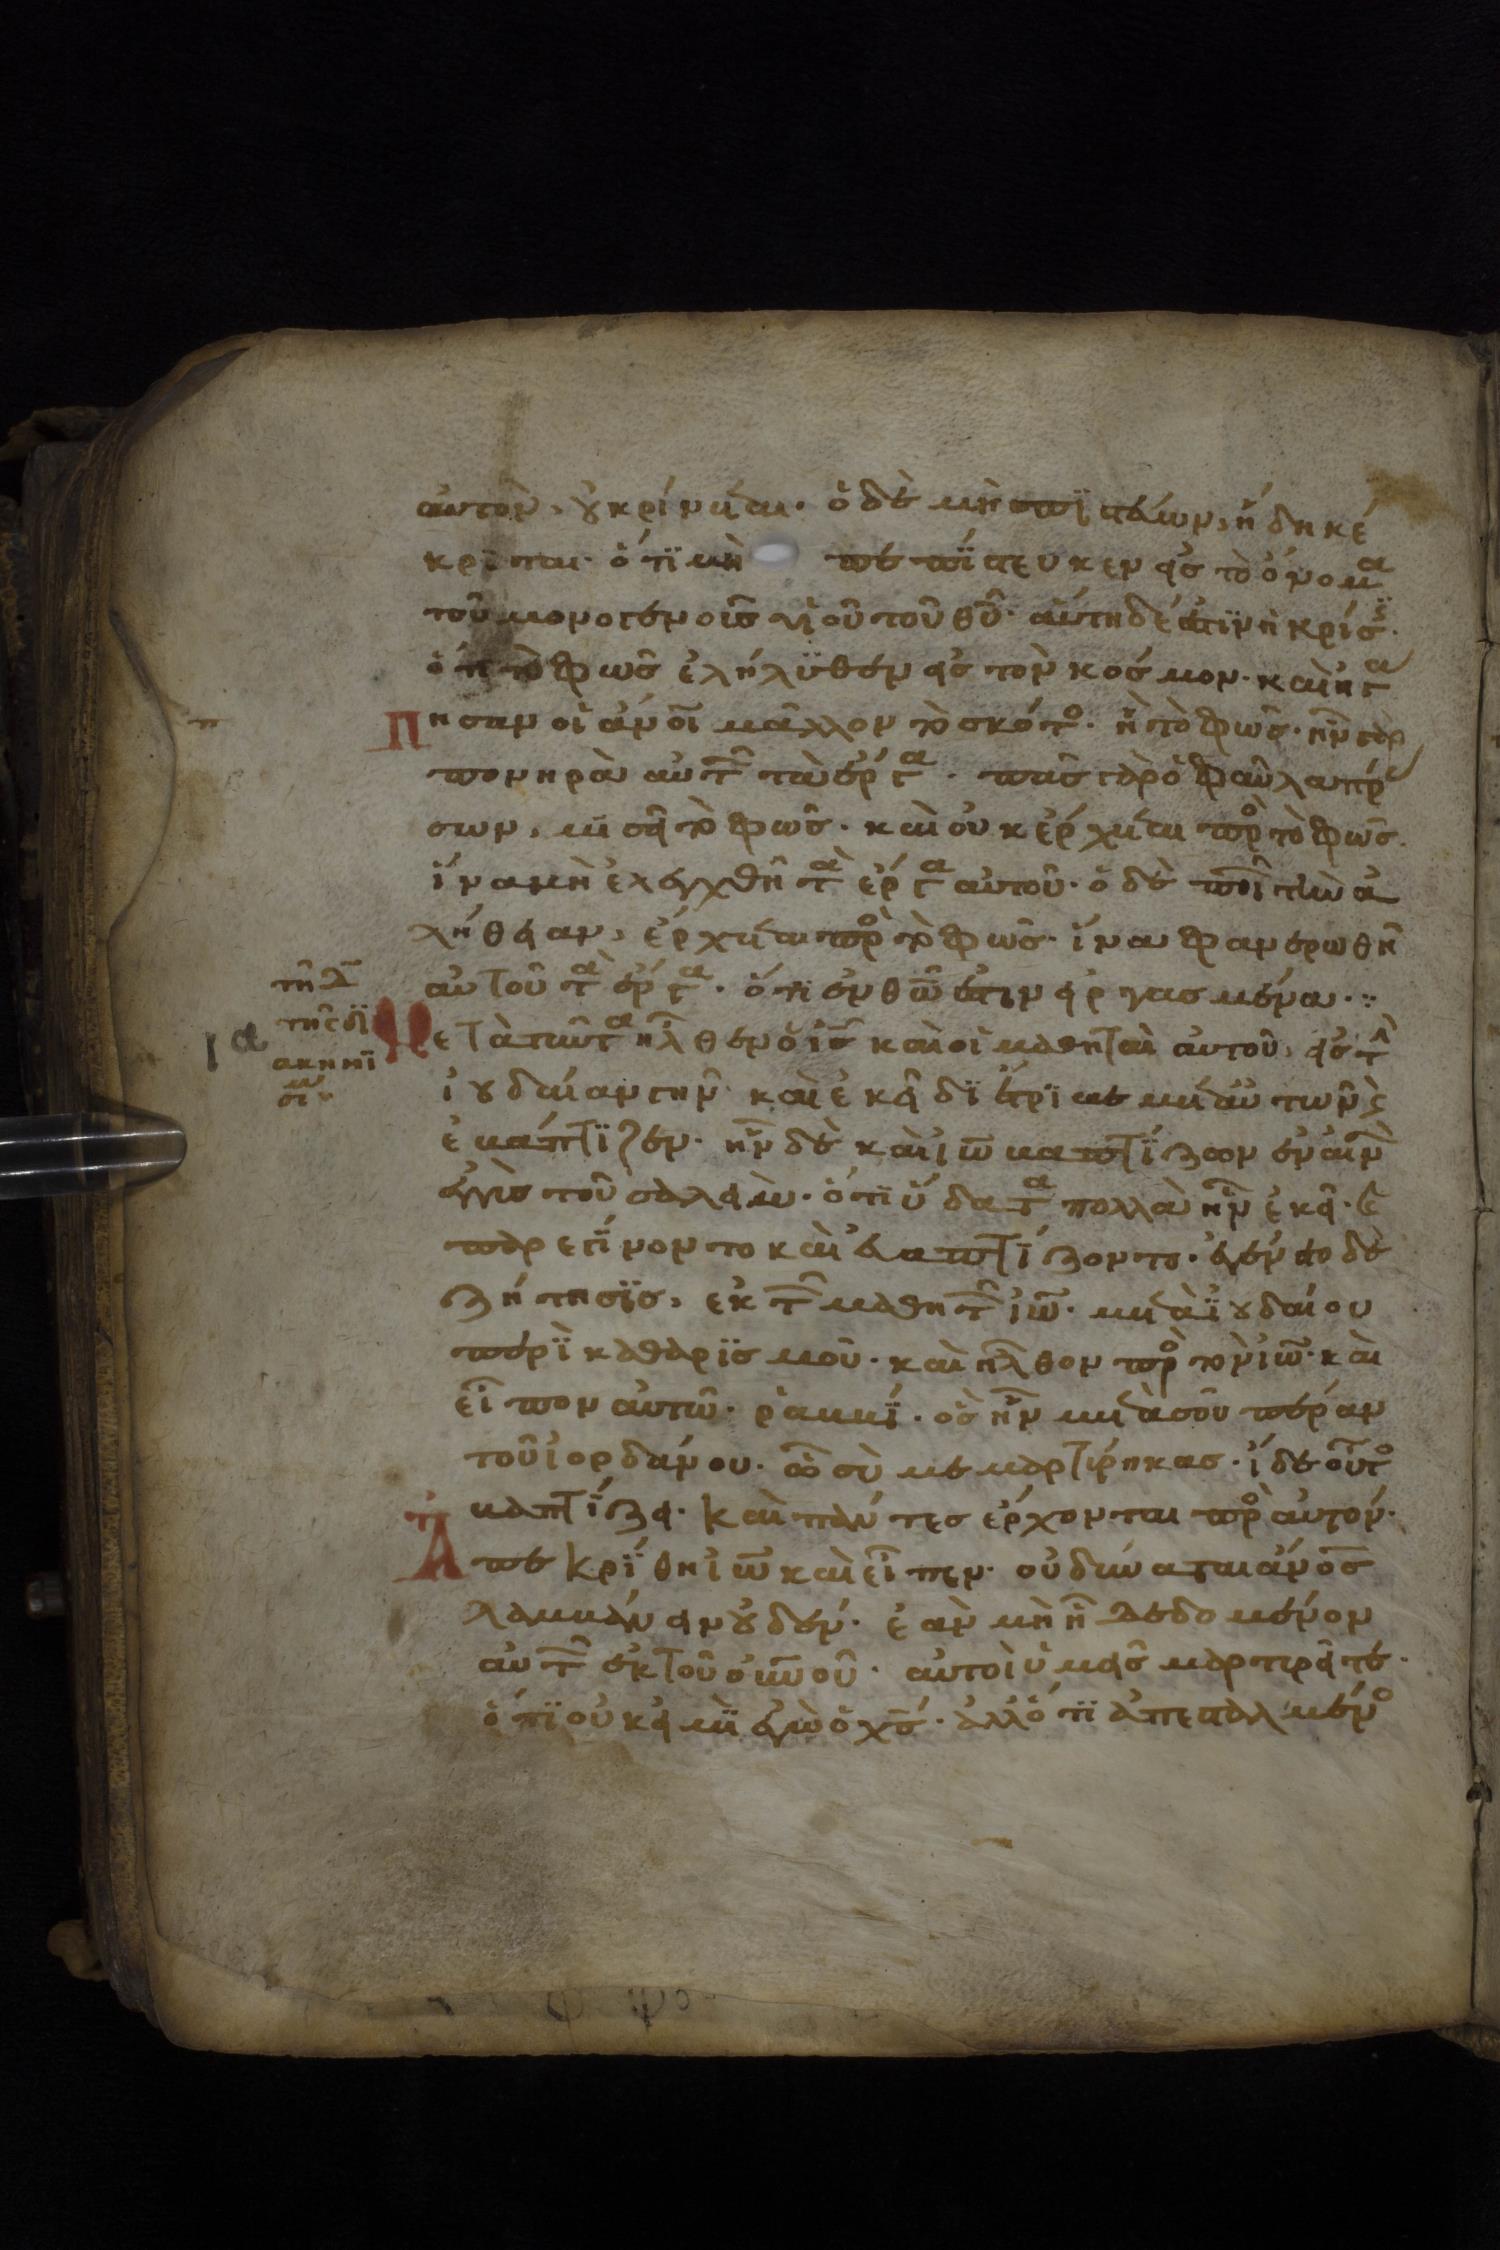 αὐτὸν, οὐ κρίνεται· ὁ δὲ μὴ πιστεύων, ἤδη κέ
κριται· ὅτι μὴ πεπίστευκεν εἰς τὸ ὄνομα
τοῦ μονογενοῦς υἱοῦ τοῦ θυ̅· αὕτη δέ ἐστιν ἡ κρίσις·
ὅτι τὸ φῶς ἐλήλυθεν εἰς τὸν κόσμον· καὶ ἠγά
πησαν οἱ ἄνο̅ι μᾶλλον τὸ σκότος· ἢ τὸ φῶς· ἦν γὰρ
πονηρὰ αὐτῶν τὰ ἔργα· πᾶς γὰρ ὁ φαῦλα πράσ
σων, μισεῖ τὸ φῶς· καὶ οὐκ ἔρχεται πρὸς τὸ φῶς·
ἵνα μὴ ἐλεγχθῆ τὰ ἔργα αὐτοῦ· ὁ δὲ ποιῶν τὴν ἀ
λήθειαν, ἔρχεται πρὸς τὸ φῶς· ἵνα φανερωθῆ
αὐτοῦ τὰ ἔργα· ὅτι ἐν θω̅ ἐστιν εἰργασμένα·
τῆ Δ
τῆς δι
ακηνι
σι
ια
Μετὰ ταῦτα ἦλθεν ὁ ις̅ καὶ οἱ μαθηταὶ αὐτοῦ, εἰς τὴν
ἰουδαίαν γῆν· καὶ ἐκεῖ διέτριβε μετ᾽ αὐτῶν καὶ
ἐβάπτιζεν· ἦν δὲ καὶ ιω̅ βαπτίζων ἐν αἰνὼν
ἐγγὺς τοῦ σαλείμ· ὅτι ὕδατα πολλὰ ἦν ἐκεῖ· καὶ
παρεγίνοντο καὶ ἐβαπτίζοντο· ἐγένετο δὲ
ζήτησις, ἐκ τῶν μαθητῶν ιω̅· μετὰ ἰουδαίου
περὶ καθαρισμοῦ· καὶ ἦλθον πρὸς τὸν ιω̅· καὶ
εἶπον αὐτῶ· ῥαββί· ὃς ἦν μετὰ σοῦ πέραν
τοῦ ἰορδάνου· ὧ σὺ μεμαρτύρηκας· ἴδε οὗτος
βαπτίζει· καὶ πάντες ἔρχονται πρὸς αὐτόν·
Ἀπεκρίθη ιω̅ καὶ εἶπεν· οὐ δύναται ἄνο̅ς
λαμβάνειν οὐδέν· ἐὰν μὴ ἦ δεδομένον
αὐτῶ ἐκ τοῦ ου̅νου̅· αὐτοὶ ὑμεῖς μαρτυρεῖτε·
ὅτι οὐκ εἰμὶ ἐγὼ ὁ χς̅· ἀλλ᾽ ὅτι ἀπεσταλμένος